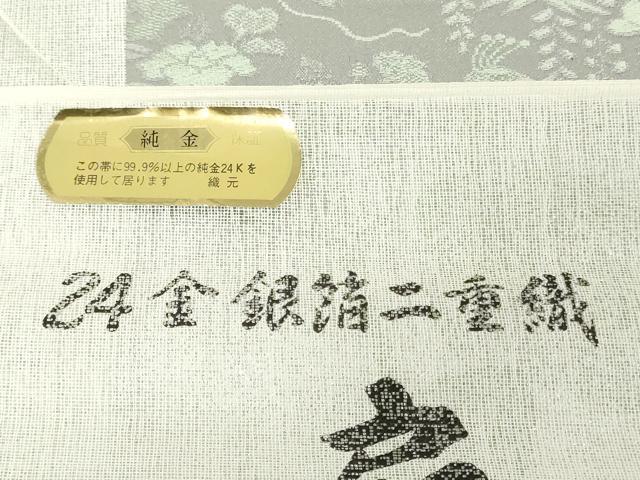 品質 純金 保証
この帯に99.9％以上の純金24Kを
使用して居ります 織元
24金銀箔二重織